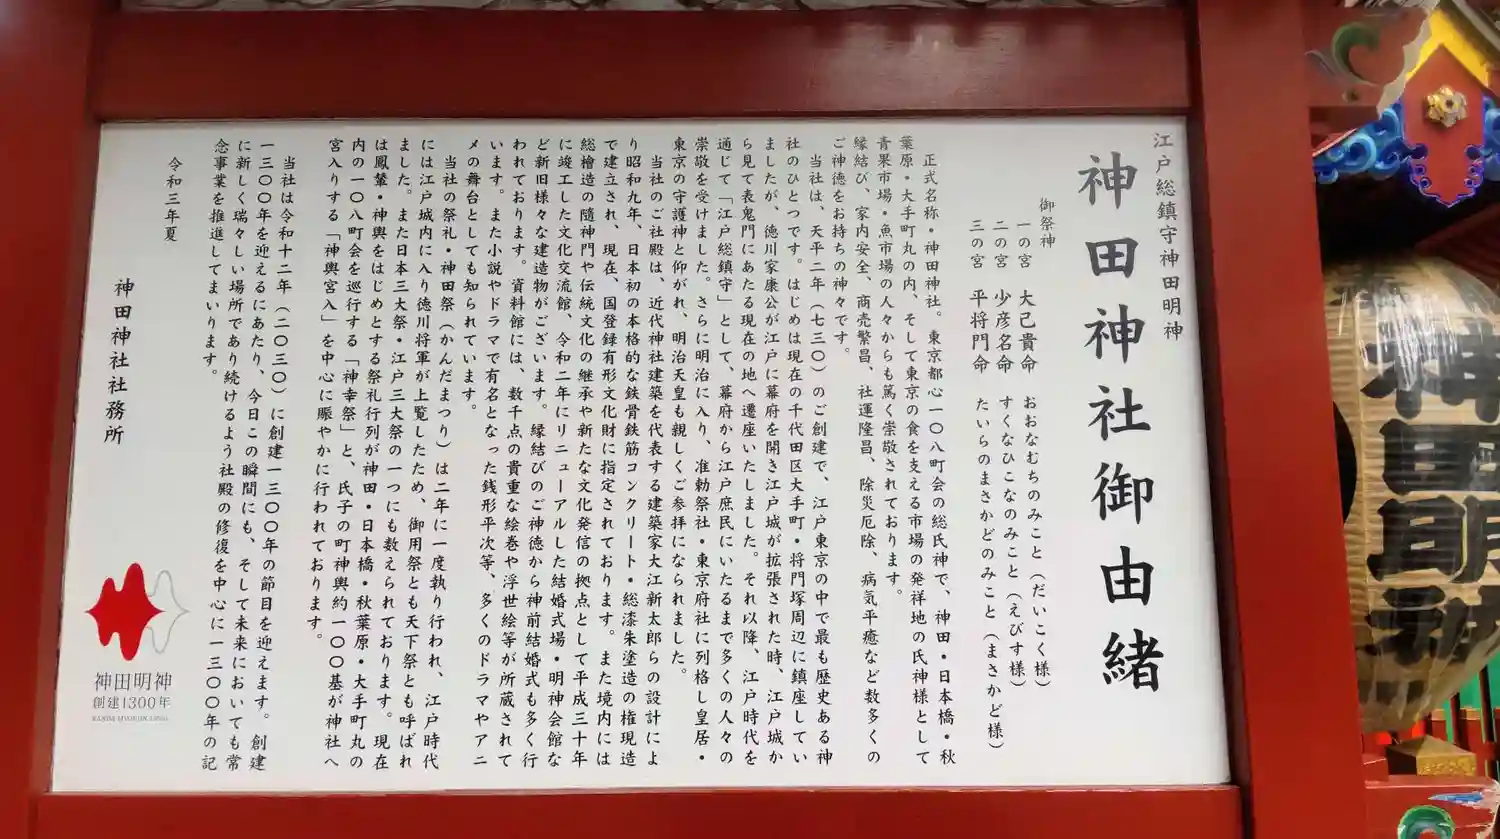 江戸総鎮守神田明神
神田神社御由緒
御祭神
一の宮 大己貴命 おおなむちのみこと(だいこく様)
二の宮 少彦名命 すくなひこなのみこと(えびす様)
三の宮 平将門命 たいらのまさかどのみこと(まさかど様)
正式名称・神田神社。東京都心一〇八町会の総氏神で、神田・日本橋・秋
葉原・大手町丸の内、そして東京の食を支える市場の発祥地の氏神様として
青果市場・魚市場の人々からも篤く崇敬されております。
縁結び、家内安全、商売繁昌、社運隆昌、除災厄除、病気平癒など数多くの
ご神徳をお持ちの神々です。
当社は、天平二年(七三〇)のご創建で、江戸東京の中で最も歴史ある神
社のひとつです。はじめは現在の千代田区大手町・将門塚周辺に鎮座してい
ましたが、徳川家康公が江戸に幕府を開き江戸城が拡張された時、江戸城か
ら見て表鬼門にあたる現在の地へ遷座いたしました。それ以降、江戸時代を
通じて「江戸総鎮守」として、幕府から江戸庶民にいたるまで多くの人々の
崇敬を受けました。さらに明治に入り、准勅祭社・東京府社に列格し皇居・
東京の守護神と仰がれ、明治天皇も親しくご参拝になられました。
当社のご社殿は、近代神社建築を代表する建築家大江新太郎らの設計によ
り昭和九年、日本初の本格的な鉄骨鉄筋コンクリート・総漆朱塗造の権現造
で建立され、現在、国登録有形文化財に指定されております。また境内には
総檜造の隨神門や伝統文化の継承や新たな文化発信の拠点として平成三十年
に竣工した文化交流館、令和二年にリニューアルした結婚式場・明神会館な
ど新旧様々な建造物がございます。縁結びのご神徳から神前結婚式も多く行
われております。資料館には、数千点の貴重な絵巻や浮世絵等が所蔵されて
います。また小説やドラマで有名となった銭形平次等、多くのドラマやアニ
メの舞台としても知られています。
当社の祭礼・神田祭(かんだまつり)は二年に一度執り行われ、江戸時代
には江戸城内に入り徳川将軍が上覧したため、御用祭とも天下祭とも呼ばれ
ました。また日本三大祭・江戸三大祭の一つにも数えられております。現在
は鳳輦・神輿をはじめとする祭礼行列が神田・日本橋・秋葉原・大手町丸の
内の一〇八町会を巡行する「神幸祭」と、氏子の町神輿約一〇〇基が神社へ
宮入りする「神輿宮入」を中心に賑やかに行われております。
当社は令和十二年(二〇三〇)に創建一三〇〇年の節目を迎えます。創建
一三〇〇年を迎えるにあたり、今日この瞬間にも、そして未来においても常
に新しく瑞々しい場所であり続けるよう社殿の修復を中心に一三〇〇年の記
念事業を推進してまいります。
令和三年夏
神田神社社務所
神田明神
創建1300年
KANDA MYOUJIN 1300th
神田明神